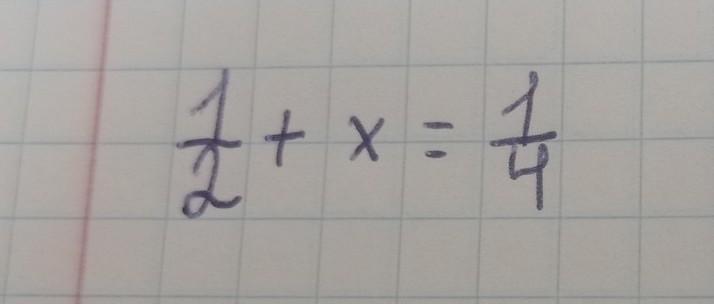 1/2 + x = 1/4